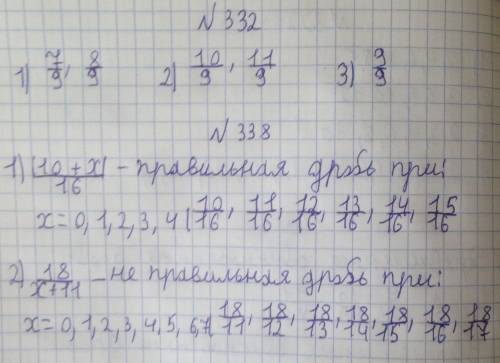 №332
1) 7/9, 8/9 2) 10/9, 11/9 3) 9/9
№338
1) (10+x)/16 – правильная дробь при:
x=0,1,2,3,4 (10/16, 11/16, 12/16, 13/16, 14/16, 15/16
2) 18/x+11 – не правильная дробь при:
x=0,1,2,3,4,5,6,7(18/11, 18/12, 18/13, 18/14, 18/15, 18/16, 18/17